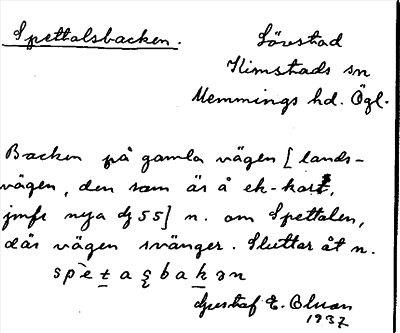 Spettalsbacken.
Lövstad
Kimstads sn
Memmings hd. Ögl.
Backen på gamla vägen [lands-
vägen, den som är å ek-kart,
jmfr nya dj 55] n. om Spettalen,
där vägen svänger. Sluttar åt n.
Gustaf E.
1937